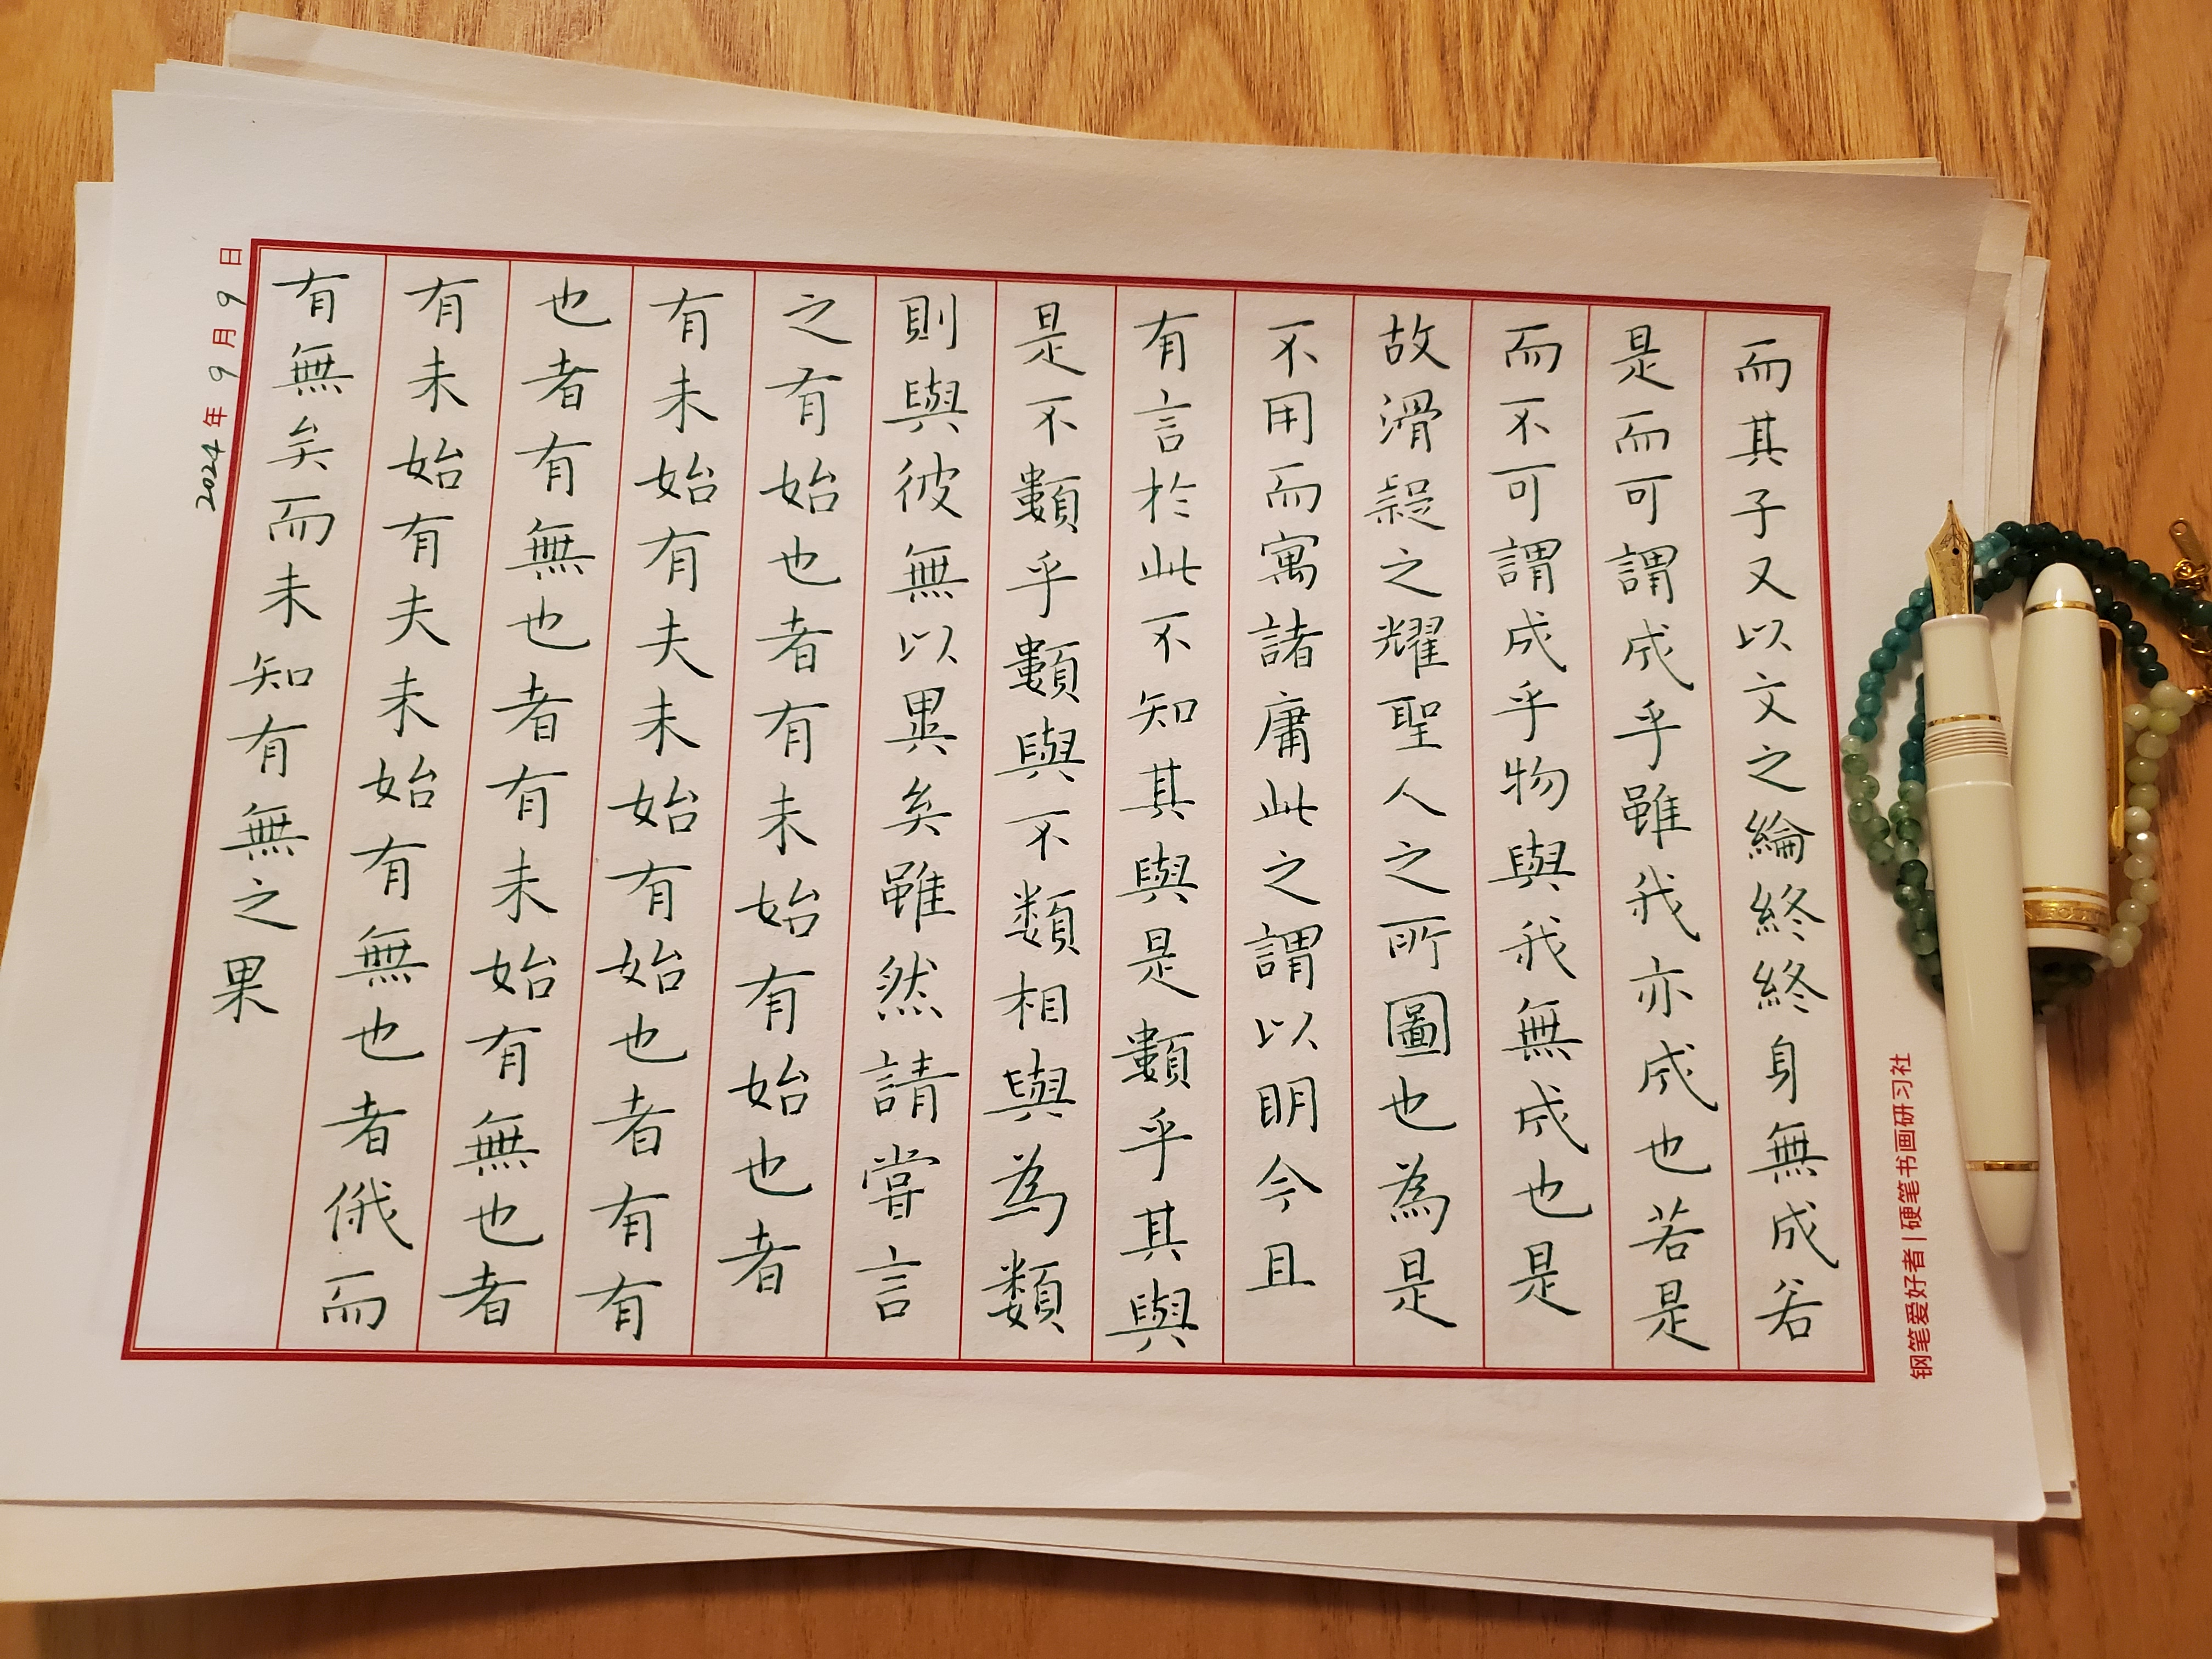 而其子又以文之綸終終身無成若
是而可謂成乎雖我亦成也若是
而不可謂成乎物與我無成也是
故滑疑之耀聖人之所圖也為是
不用而寓諸庸此之謂以明今且
有言於此不知其與是類乎其與
是不類乎類與不類相與為類
則與彼無以異矣雖然請嘗言
之有始也者有未始有始也者
有未始有夫未始有始也者有有
也者有無也者有未始有無也者
有未始有夫未始有無也者俄而
有無矣而未知有無之果
2024年9月9日
钢笔爱好者|硬笔书画研习社